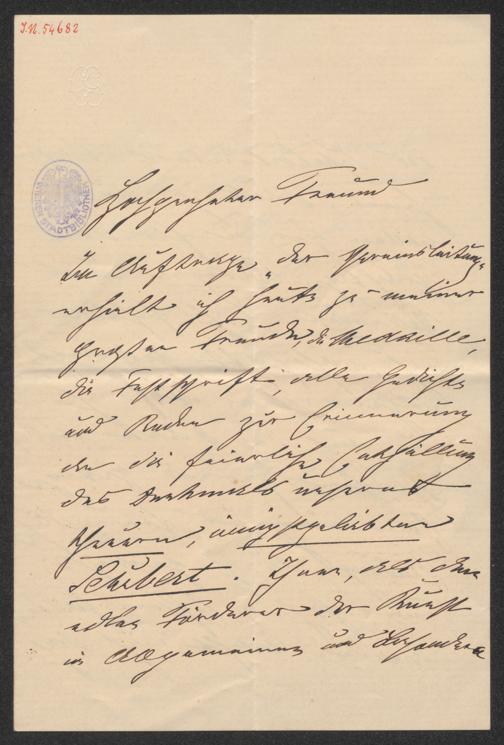 I.N. 54682
WIENER STADTBIBLIOTHEK
Hochgeehrter Freund
Im Auftrage „der Vereinsleitung"
erhielt ich heute zu meiner
großen Freude, die Medaille,
die Festschrift, alle Gedichte
und Reden zur Erinnerung
an die feierliche Enthüllung
des Denkmals unseres
theuren, innigstgeliebten
Schubert. Ihnen, als dem
edlen Förderer der Kunst
im Allgemeinen und besonders